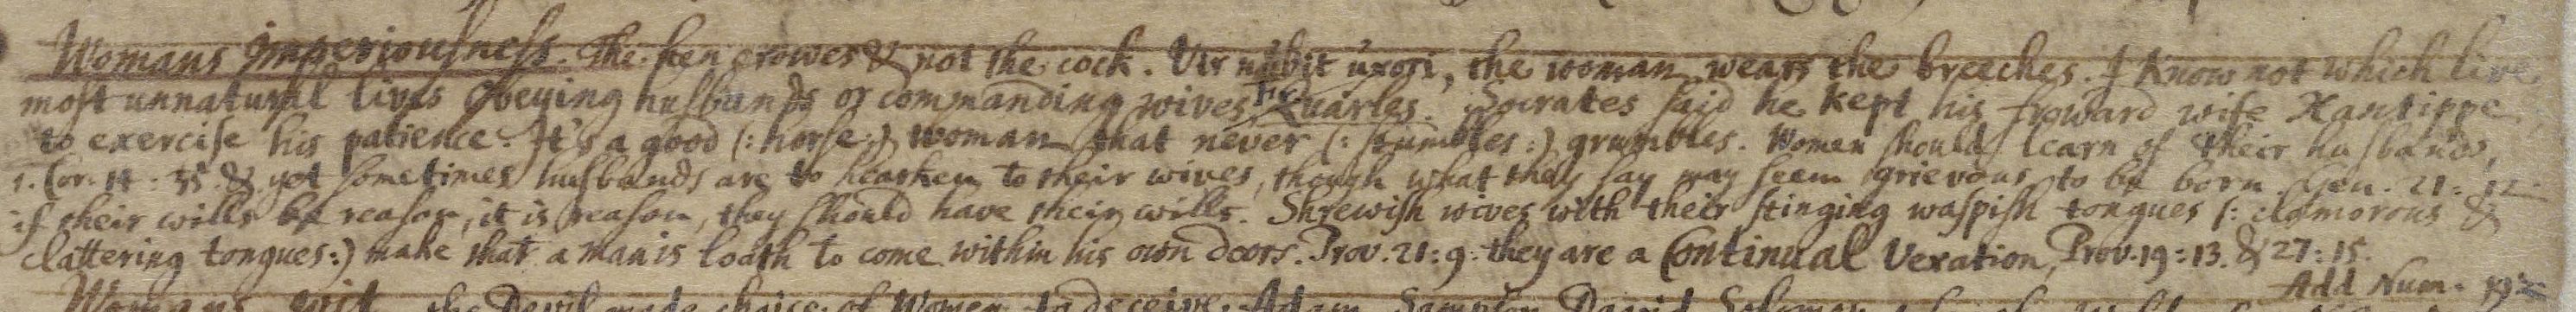 Womans Imperiousness. The hen crowes & not the cock. Vir nubit uxori, the woman wears the breeches. I know not which live
most unnatural lives obeying husbands or commanding wives Quarles. Socrates said he kept his froward wife Xantippe,
to exercise his patience. It's a good (: horse :) woman that never (: stumbles :) grumbles. Women should learn of their husbands,
1. Cor. 14 : 35. & yet sometimes husbands are to hearken to their wives, though what they say may seem grievous to be born. Gen. 21 : 12.
if their wills be reason, it is reason, they should have their wills. Shrewish wives with their stinging waspish tongues (: clamorous &
clattering tongues :) make that a man is loath to come within his own doors. Prov. 21 : 9. they are a Continual Vexation, Prov. 19 : 13. & 27 : 15.
Add Num.
Womans wit the Devil made choice of Women to deceive. Adam, Sampson, David, Solomon